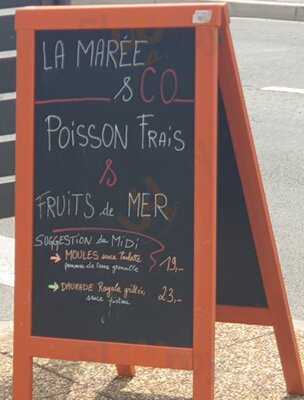 LA MARÉE
& CO
POISSON FRAIS
&
FRUITS de MER
SUGGESTION du MIDI
→ MOULES sauce
pomme de terre grenaille
19,-
→ DAURADE Royale grillée 23,-
sauce